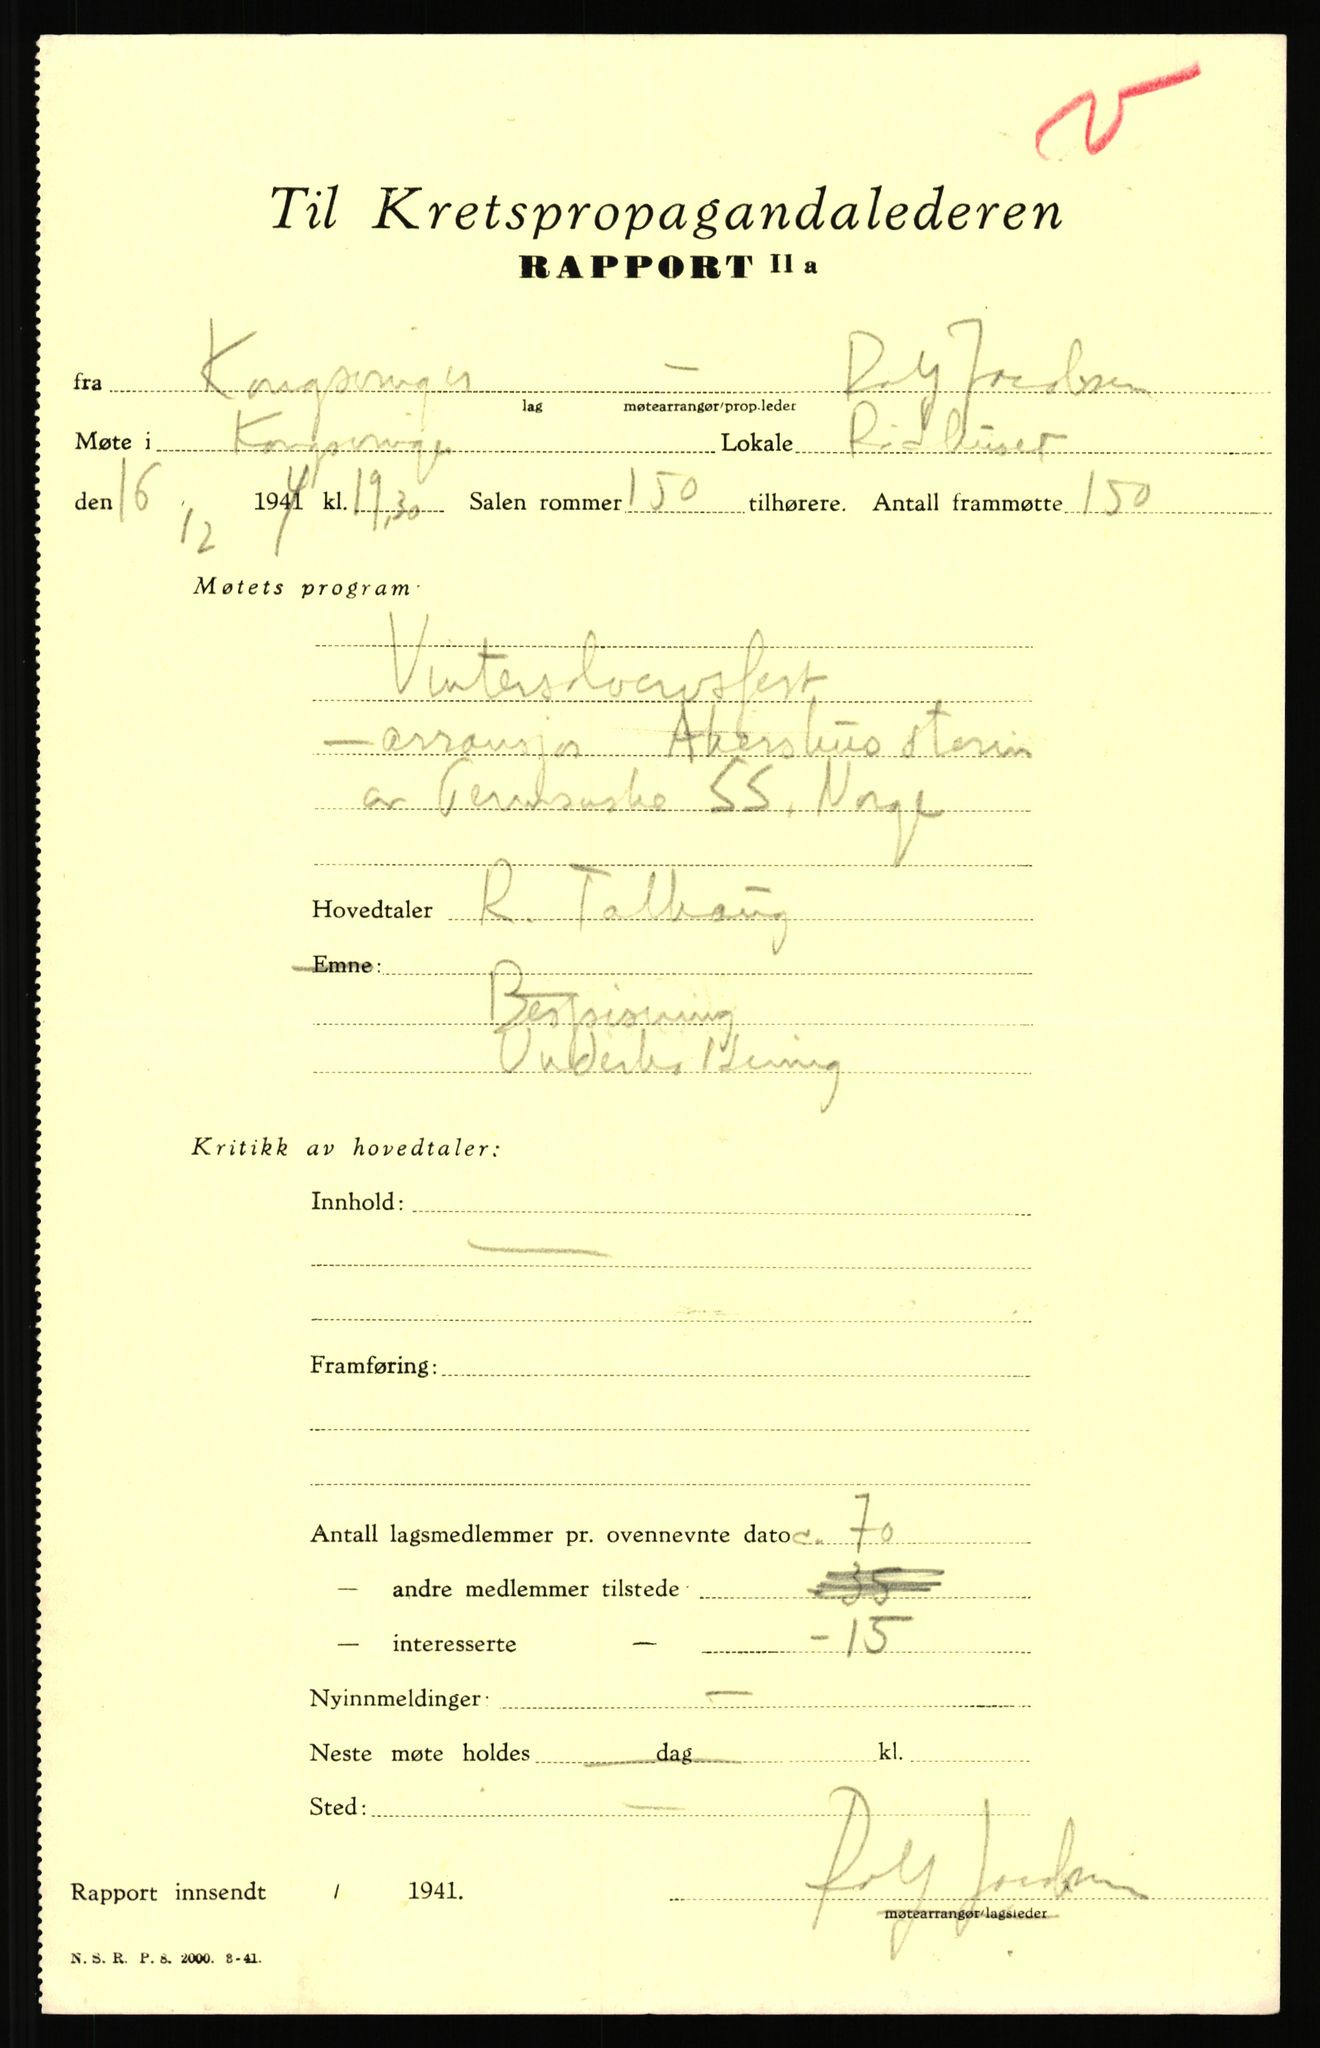 Til Kretspropagandalederen
RAPPORT II a
fra Kongsvinger — Rolf Jacobsen
lag møtearrangør/prop.leder
Møte i Kongsvinger Lokale Rådhuset
den 16/12 1944 kl. 19,30 Salen rommer 150 tilhørere. Antall frammøtte 150
Møtets program:
Vintersolvervsfest
— arransjør Akershus storm
av Germanske SS, Norge
Hovedtaler R. Talhaug
Emne:
Bespisning
Underholdning
Kritikk av hovedtaler:
Innhold:
—
Framføring:
Antall lagsmedlemmer pr. ovennevnte dato c. 70
— andre medlemmer tilstede - 35
— interesserte — - 15
Nyinnmeldinger: —
Neste møte holdes dag kl.
Sted: —
Rolf Jacobsen
Rapport innsendt / 1941.
møtearrangør/lagsleder
N. S. R. P. S. 2000. 8-41.